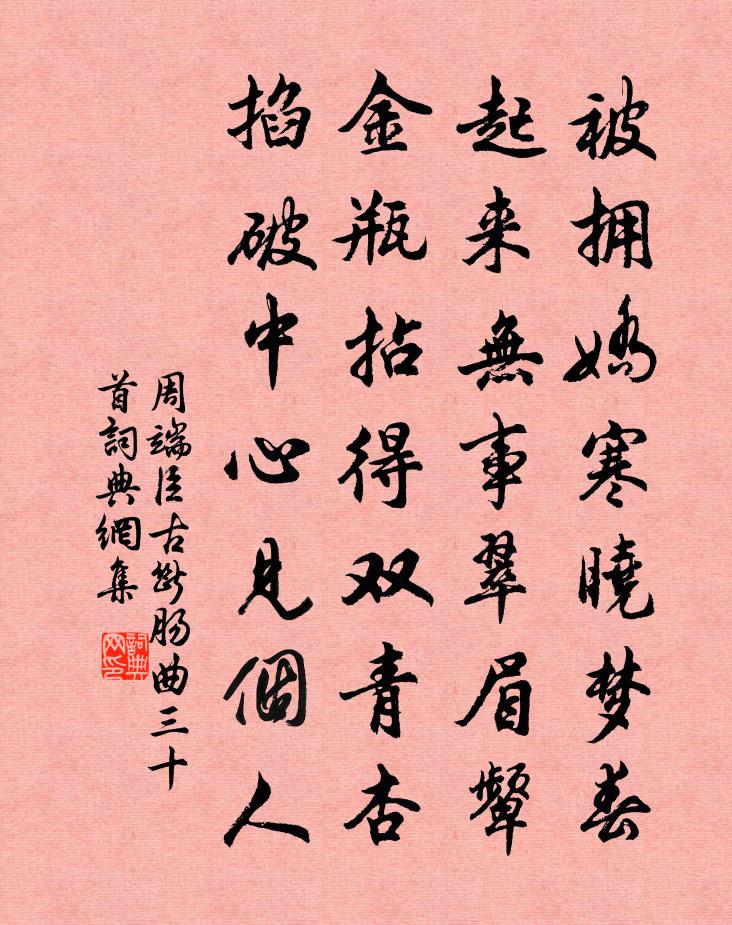 被拥娇寒晓梦春
起来無事翠眉颦
金瓶拈得双青杏
掐破中心見個人
周端臣古断肠曲三十
首詞典網集
詞典
网印